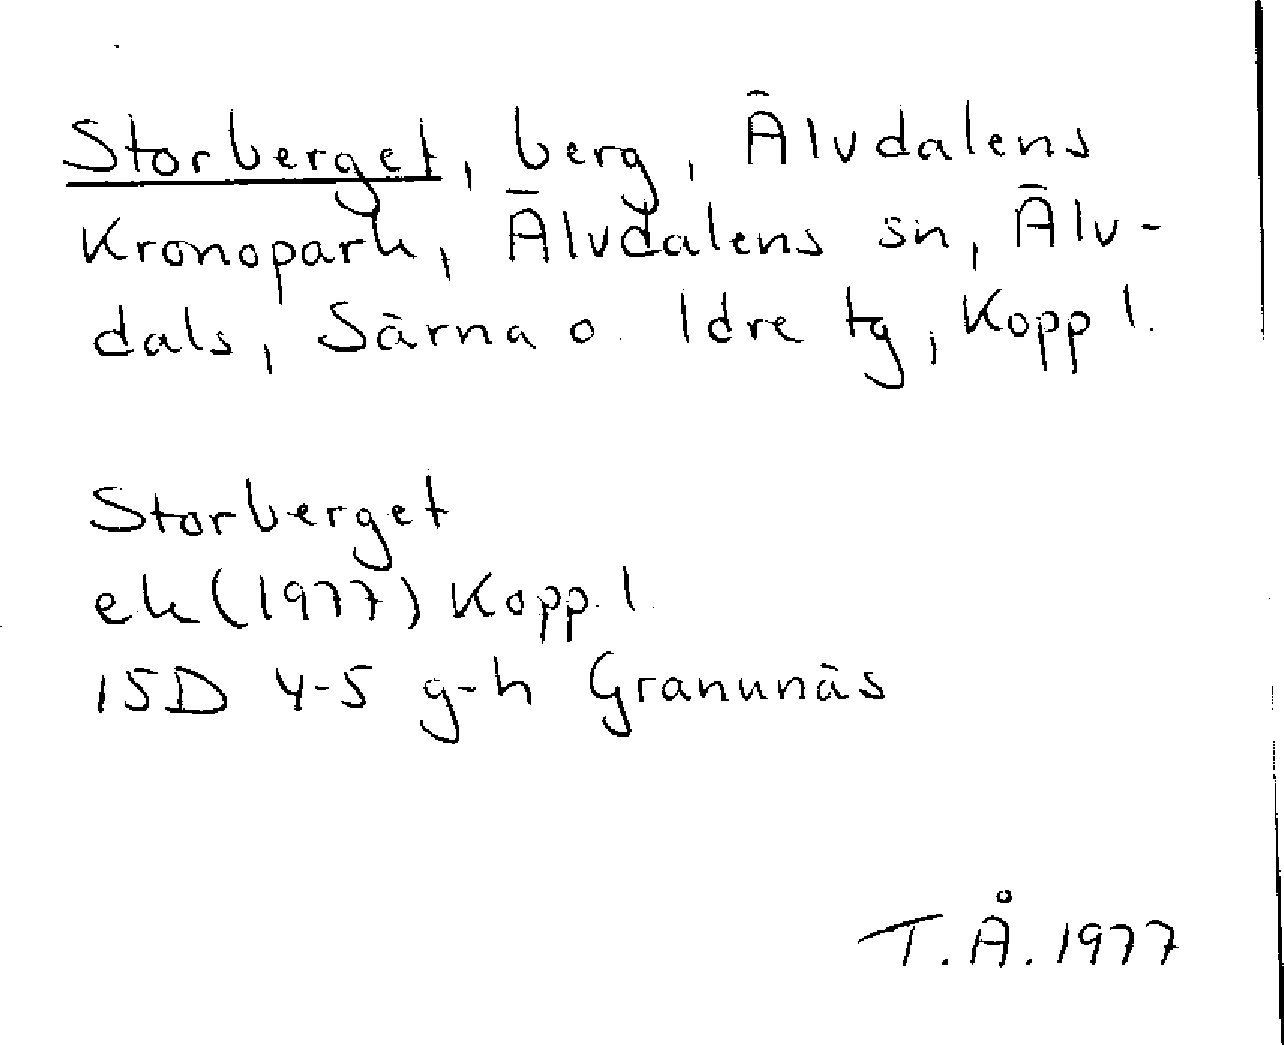 Storberget, berg, Älvdalens
Kronopark, Älvdalens sn, Älv-
dals, Särna o. Idre tg, Kopp l.
Storberget
ek (1977) Kopp. l
15D 4-5 g-h Granunäs
T.Å. 1977